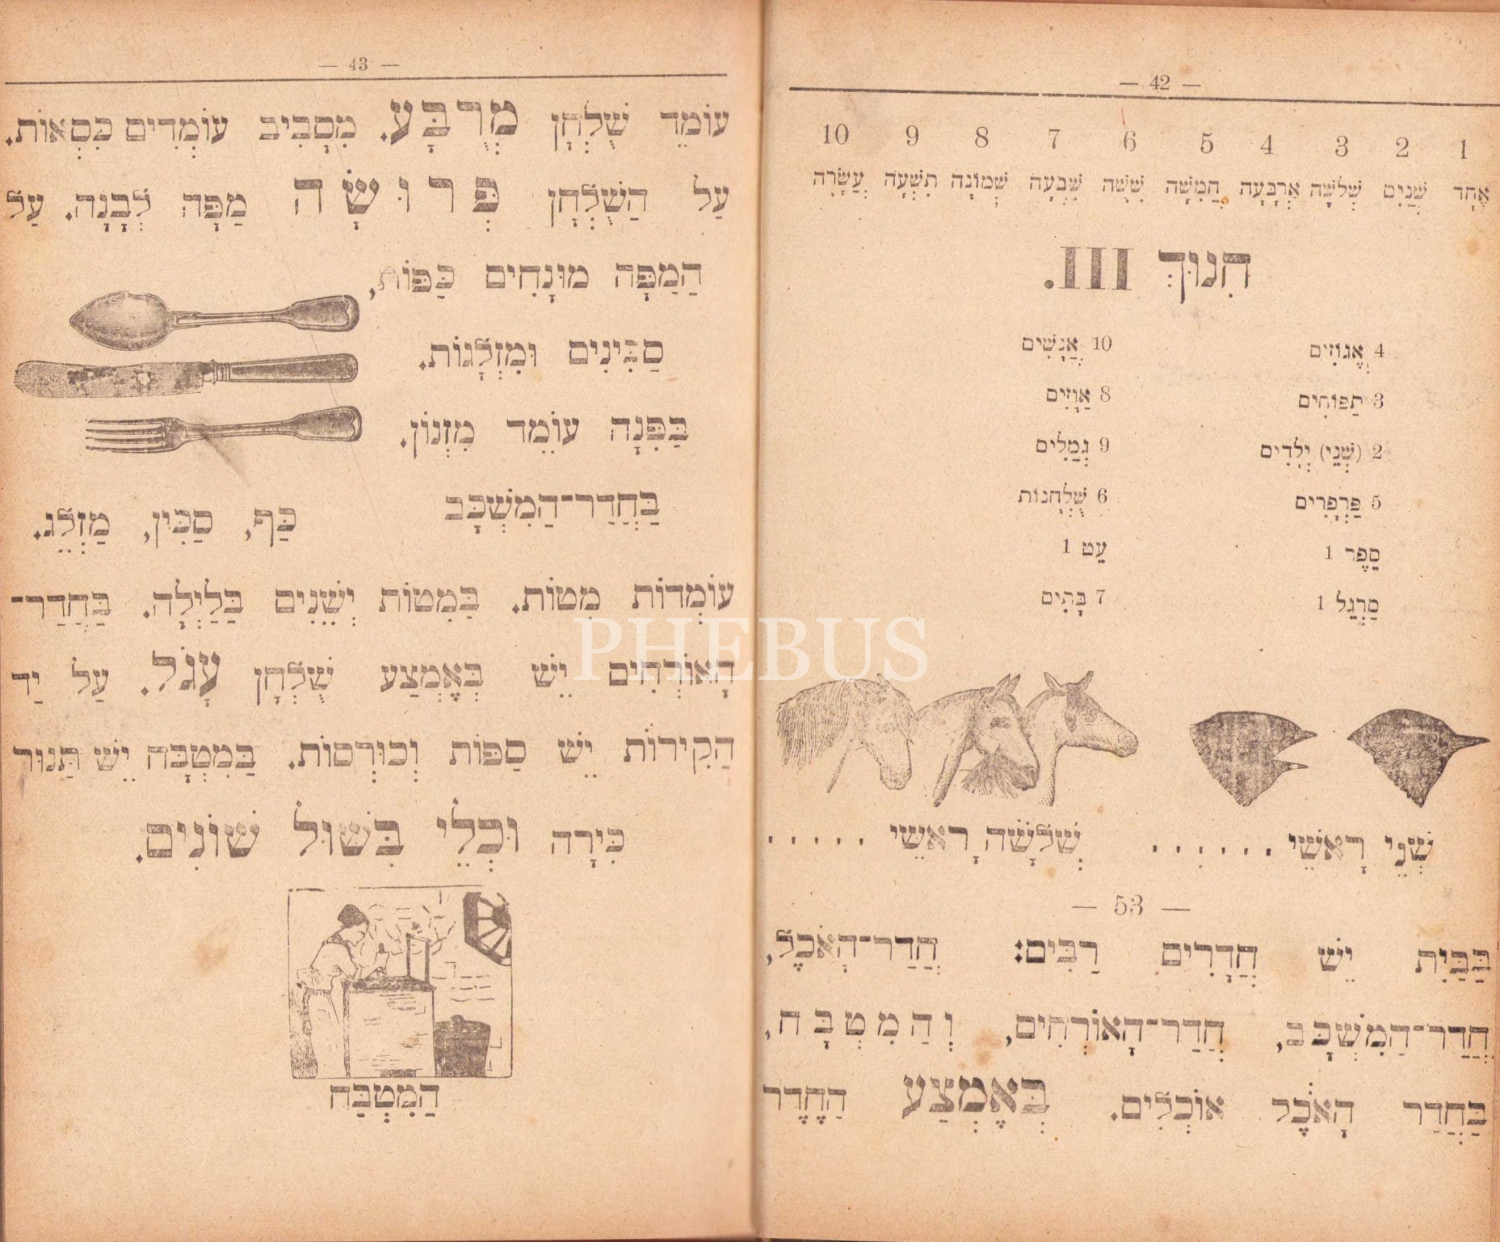 — 42 —
1 2 3 4 5 6 7 8 9 10
אֶחָד שְׁנַיִם שְׁלשָׁה אַרְבָּעָה חֲמִשָּׁה שִׁשָּׁה שִׁבְעָה שְׁמוֹנָה תִּשְׁעָה עֲשָׂרָה
חִנּוּךְ III.
4 אֱגוֹזִים 10 אֲנָשִׁים
3 תַּפּוּחִים 8 אַוָּזִים
2 (שְׁנֵי) יְלָדִים 9 גְּמַלִּים
5 פַּרְפָּרִים 6 שֻׁלְחָנוֹת
סֵפֶר 1 עֵט 1
סַרְגֵּל 1 7 בָּתִּים
שְׁנֵי רָאשֵׁי . . . . . . שְׁלשָׁה רָאשֵׁי . . . . .
— 53 —
בַּבַּיִת יֵשׁ חֲדָרִים רַבִּים: חֲדַר־הָאֹכֶל,
חֲדַר־הַמִּשְׁכָּב, חֲדַר־הָאוֹרְחִים, וְהַמִּטְבָּח,
בַּחֲדַר הָאֹכֶל אוֹכְלִים. בְּאֶמְצַע הַחֶדֶר
— 43 —
עוֹמֵד שֻׁלְחָן מְרֻבָּע. מִסָּבִיב עוֹמְדִים כִּסְאוֹת.
עַל הַשֻּׁלְחָן פְּרוּשָׂה מַפָּה לְבָנָה. עַל
הַמַּפָּה מוּנָחִים כַּפּוֹת,
סַכִּינִים וּמִזְלָגוֹת.
בַּפִּנָּה עוֹמֵד מִזְנוֹן.
בַּחֲדַר־הַמִּשְׁכָּב
כַּף, סַכִּין, מַזְלֵג.
עוֹמְדוֹת מִטּוֹת. בַּמִּטּוֹת יְשֵׁנִים בַּלַּיְלָה. בַּחֲדַר־
הָאוֹרְחִים יֵשׁ בְּאֶמְצַע שֻׁלְחָן עָגֹל. עַל יַד
הַקִּירוֹת יֵשׁ סַפּוֹת וְכוּרְסוֹת. בַּמִּטְבָּח יֵשׁ תַּנּוּר
כִּירָה וּכְלֵי בִּשּׁוּל שׁוֹנִים.
הַמִּטְבַּח
PHEBUS